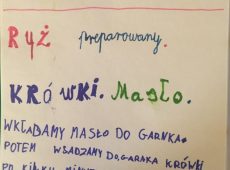 RYŻ preparowany.
KRÓWKI. Masło.
WKŁADAMY MASŁO DO GARNKA.
POTEM WSADZAMY DO GARAKA KRÓWKI
PO KILKU